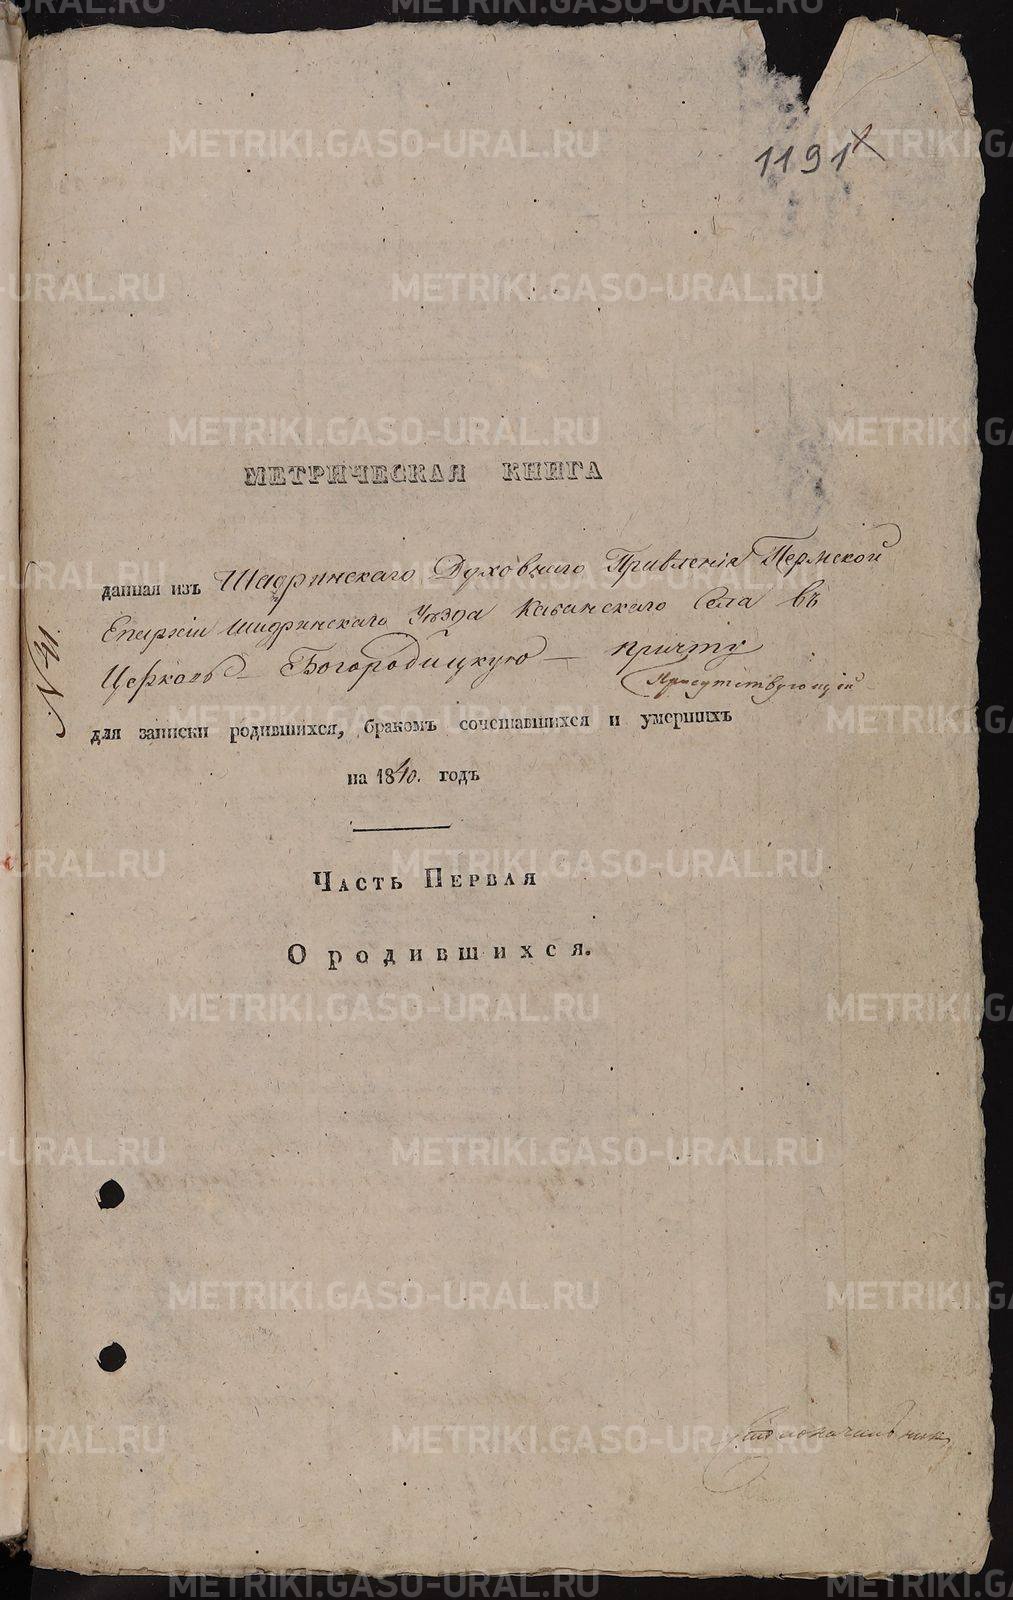 1191
МЕТРИЧЕСКАЯ КНИГА
данная изъ Шадринскаго Духовнаго Правленія Пермской
Епархіи Шадринскаго Уѣзда Кабанскаго Села въ
Церковь Богородицкую причту
Присутствующій
для записки родившихся, бракомъ сочетавшихся и умершихъ
на 1840. годъ
Часть Первая
О родившихся.
№ 31.
METRIKI.GASO-URAL.RU